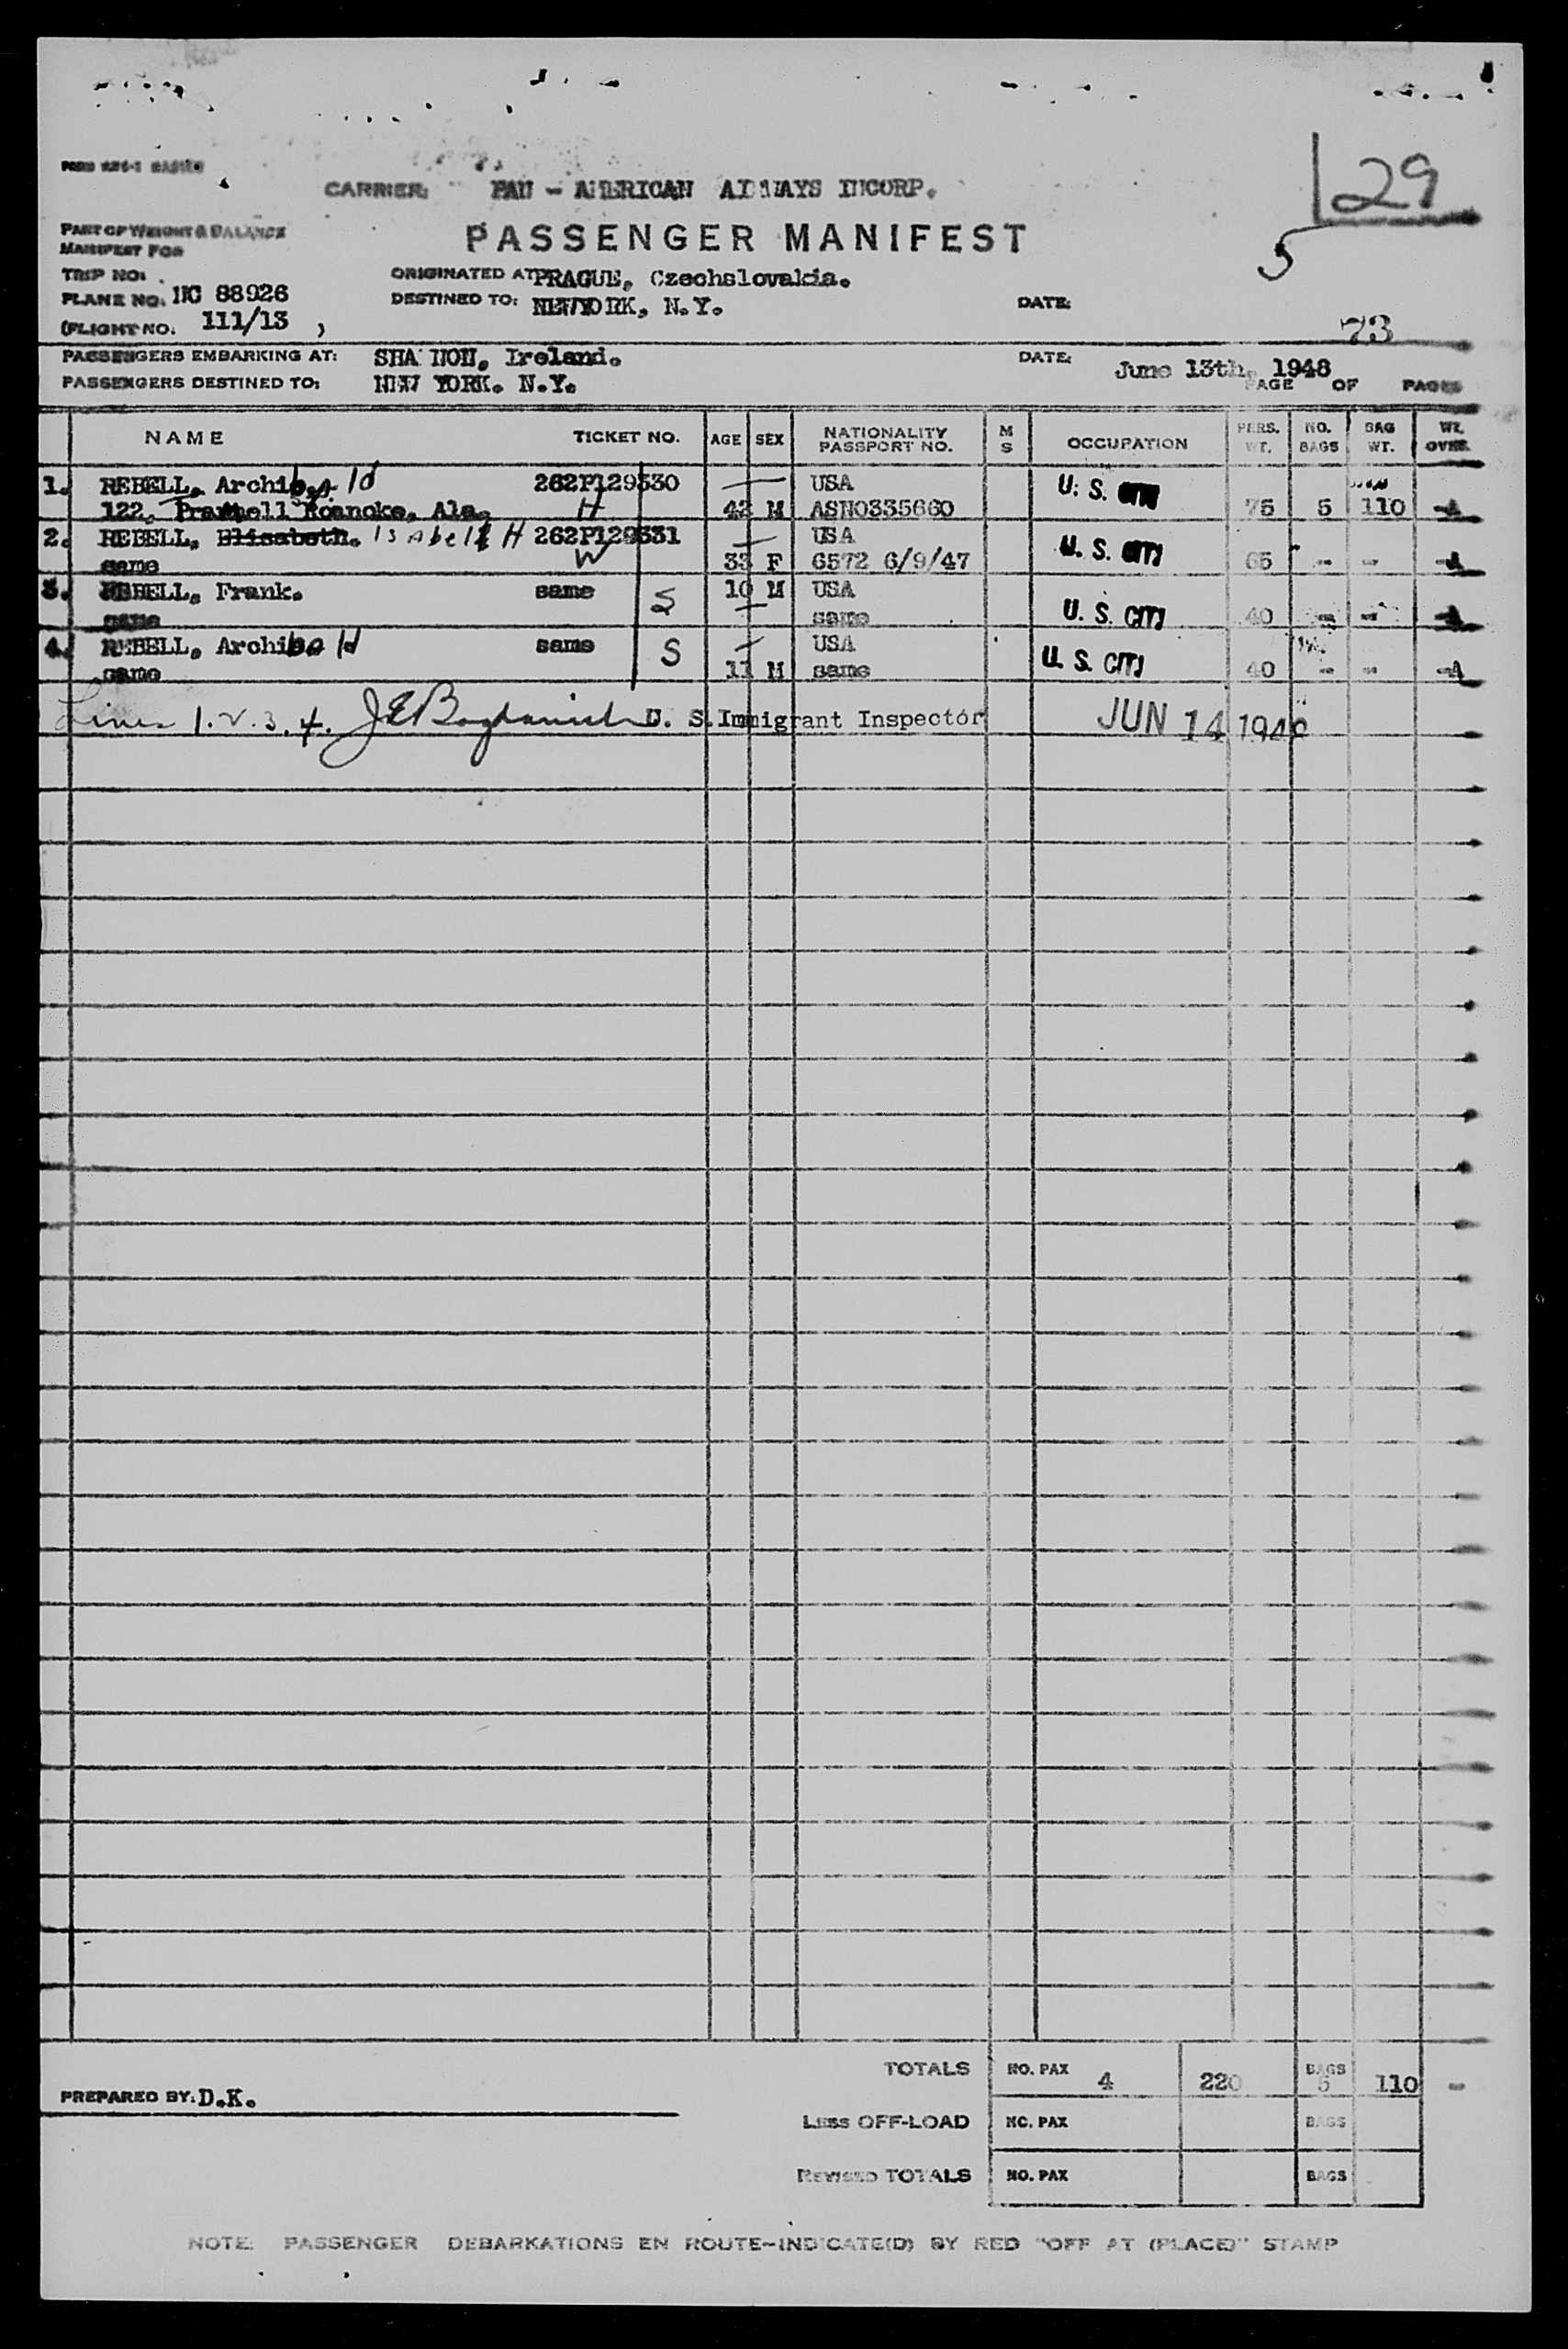 29
5
CARRIER: PAN - AMERICAN AIRWAYS INCORP.
PART OF WEIGHT & BALANCE
MANIFEST FOR
PASSENGER MANIFEST
TRIP NO:
ORIGINATED AT PRAGUE, Czechslovakia.
PLANE NO. NC 88926
DESTINED TO: NEWYORK, N.Y.
DATE:
(FLIGHT NO. 111/13 )
73
PASSENGERS EMBARKING AT: SHANNON, Ireland.
DATE: June 13th, 1948
PASSENGERS DESTINED TO: NEW YORK. N.Y.
PAGE OF PAGES
NAME TICKET NO. AGE SEX NATIONALITY PASSPORT NO. M S OCCUPATION PERS. WT. NO. BAGS BAG WT. WT. OVER.
1. REBELL, Archibald 262P129530 USA U. S.
122, Roanoke, Ala. H 42 M ASN0335660 75 5 110 -
2. REBELL, Elisabeth. Isabell H 262P129531 USA U. S.
same W 33 F 6572 6/9/47 65 - - -
3. REBELL, Frank. same S 10 M USA
same same U. S. CITI 40 - - -
4. REBELL, Archibald same S USA U. S. CITI
same 11 M same 40 - - -
Lines 1. 2. 3. 4. U. S. Immigrant Inspector JUN 14 1948
TOTALS NO. PAX 4 220 BAGS 5 110 -
PREPARED BY: D.K.
LESS OFF-LOAD NO. PAX BAGS
REVISED TOTALS NO. PAX BAGS
NOTE: PASSENGER DEBARKATIONS EN ROUTE-INDICATE(D) BY RED "OFF AT (PLACE)" STAMP